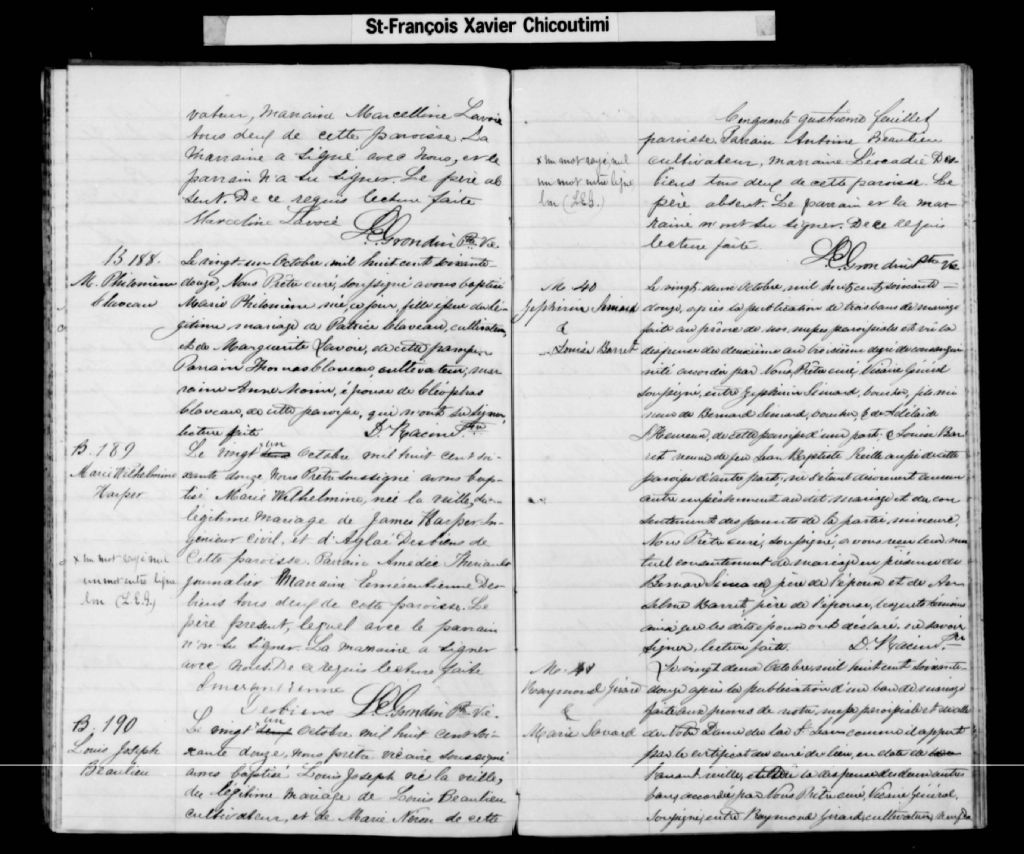 St-François Xavier Chicoutimi
vateur, Marraine Marcelline Lavoie
tous deux de cette paroisse. La
Marraine a signé avec nous, et le
parrain n'a su signer. Le père ab
sent. De ce requis lecture faite
Marceline Lavoie
L.E. Grondin Ptre Vic.
B 188.
M. Philomène
Claveau
Le vingt-un Octobre, mil huit cent soixante-
douze, Nous Prêtre curé, soussigné avons baptisé
Marie Philomène née ce jour, fille issue du lé-
gitime mariage de Patrice Claveau, cultivateur,
et de Marguerite Lavoie, de cette paroisse.
Parrain Thomas Claveau, cultivateur, mar-
raine Anne Morin, épouse de Cléophas
Claveau, de cette paroisse, qui n'ont su signer
lecture faite D. Racine Ptre
B. 189
Marie Wilhelmine
Harper
x un mot rayé nul
un mot entre ligne
bon (L.E.G.)
Le vingt x un Octobre mil huit cent soi-
xante douze Nous Prêtre soussigné avons bap-
tisé Marie Wilhelmine, née la veille, du
légitime mariage de James Harper In-
génieur Civil, et d'Aglaé Desbiens de
Cette paroisse. Parrain Amédée
journalier Marraine Emérentienne Des-
biens tous deux de cette paroisse. Le
père présent, lequel avec le parrain
n'a su signer. La marraine a signer
avec nous. De ce requis lecture faite
Emerentienne
Desbiens L.E. Grondin Ptre Vic.
B. 190
Louis Joseph
Beaulieu
Le vingt x un Octobre mil huit cent soi-
xante douze, nous prêtre vicaire soussigné
avons baptisé Louis Joseph né la veille,
du légitime mariage de Louis Beaulieu
cultivateur, et de Marie Néron de cette
Cinquante quatrième feuillet
x un mot rayé nul
un mot entre ligne
bon (L.E.G.)
paroisse. Parrain Antoine Beaulieu
cultivateur, marraine Léocadie Des-
biens tous deux de cette paroisse. Le
père absent. Le parrain et la mar-
raine n'ont su signer. De ce requis
lecture faite.
L.E. Grondin Ptre Vic
M. 40
Zéphirin Simard
&
Louise Barret
Le vingt deux Octobre, mil huit cent soixante-
douze, après la publication de trois bans de mariage
faite au prône de nos messes paroissiales et vu la
dispense du deuxième au troisième degré de consangui-
nité accordée par Nous, Prêtre curé, Vicaire Général
soussigné, entre Zéphirin Simard, boucher, fils mi-
neur de Bernard Simard, boucher, & d'Adélaïde
L'Heureux, de cette paroisse d'une part; & Louise Bar-
ret veuve de feu Jean Baptiste aussi de cette
paroisse d'autre part, ne s'étant découvert aucun
autre empêchement au dit mariage et du con-
sentement des parents de la partie mineure,
Nous Prêtre curé, soussigné, avons reçu leur mu-
tuel consentement de mariage en présence de
Bernard Simard, père de l'époux et de An-
selme Barret, père de l'épouse, lesquels témoins
ainsi que les dits époux ont déclaré ne savoir
signer, lecture faite. D. Racine Ptre
M. 41
Raymond Girard
&
Marie Savard
Le vingt deux Octobre, mil huit cent soixante-
douze après la publication d'un ban de mariage
faite aux prônes de notre messe paroissiale et de celle
de Notre Dame du lac St Jean comme il appert
par le certificat du curé du lieu, en date de
l'avant veille, et vu la dispense de deux autres
bans, accordée par Nous Prêtre curé, Vicaire Général,
soussigné, entre Raymond Girard, cultivateur,